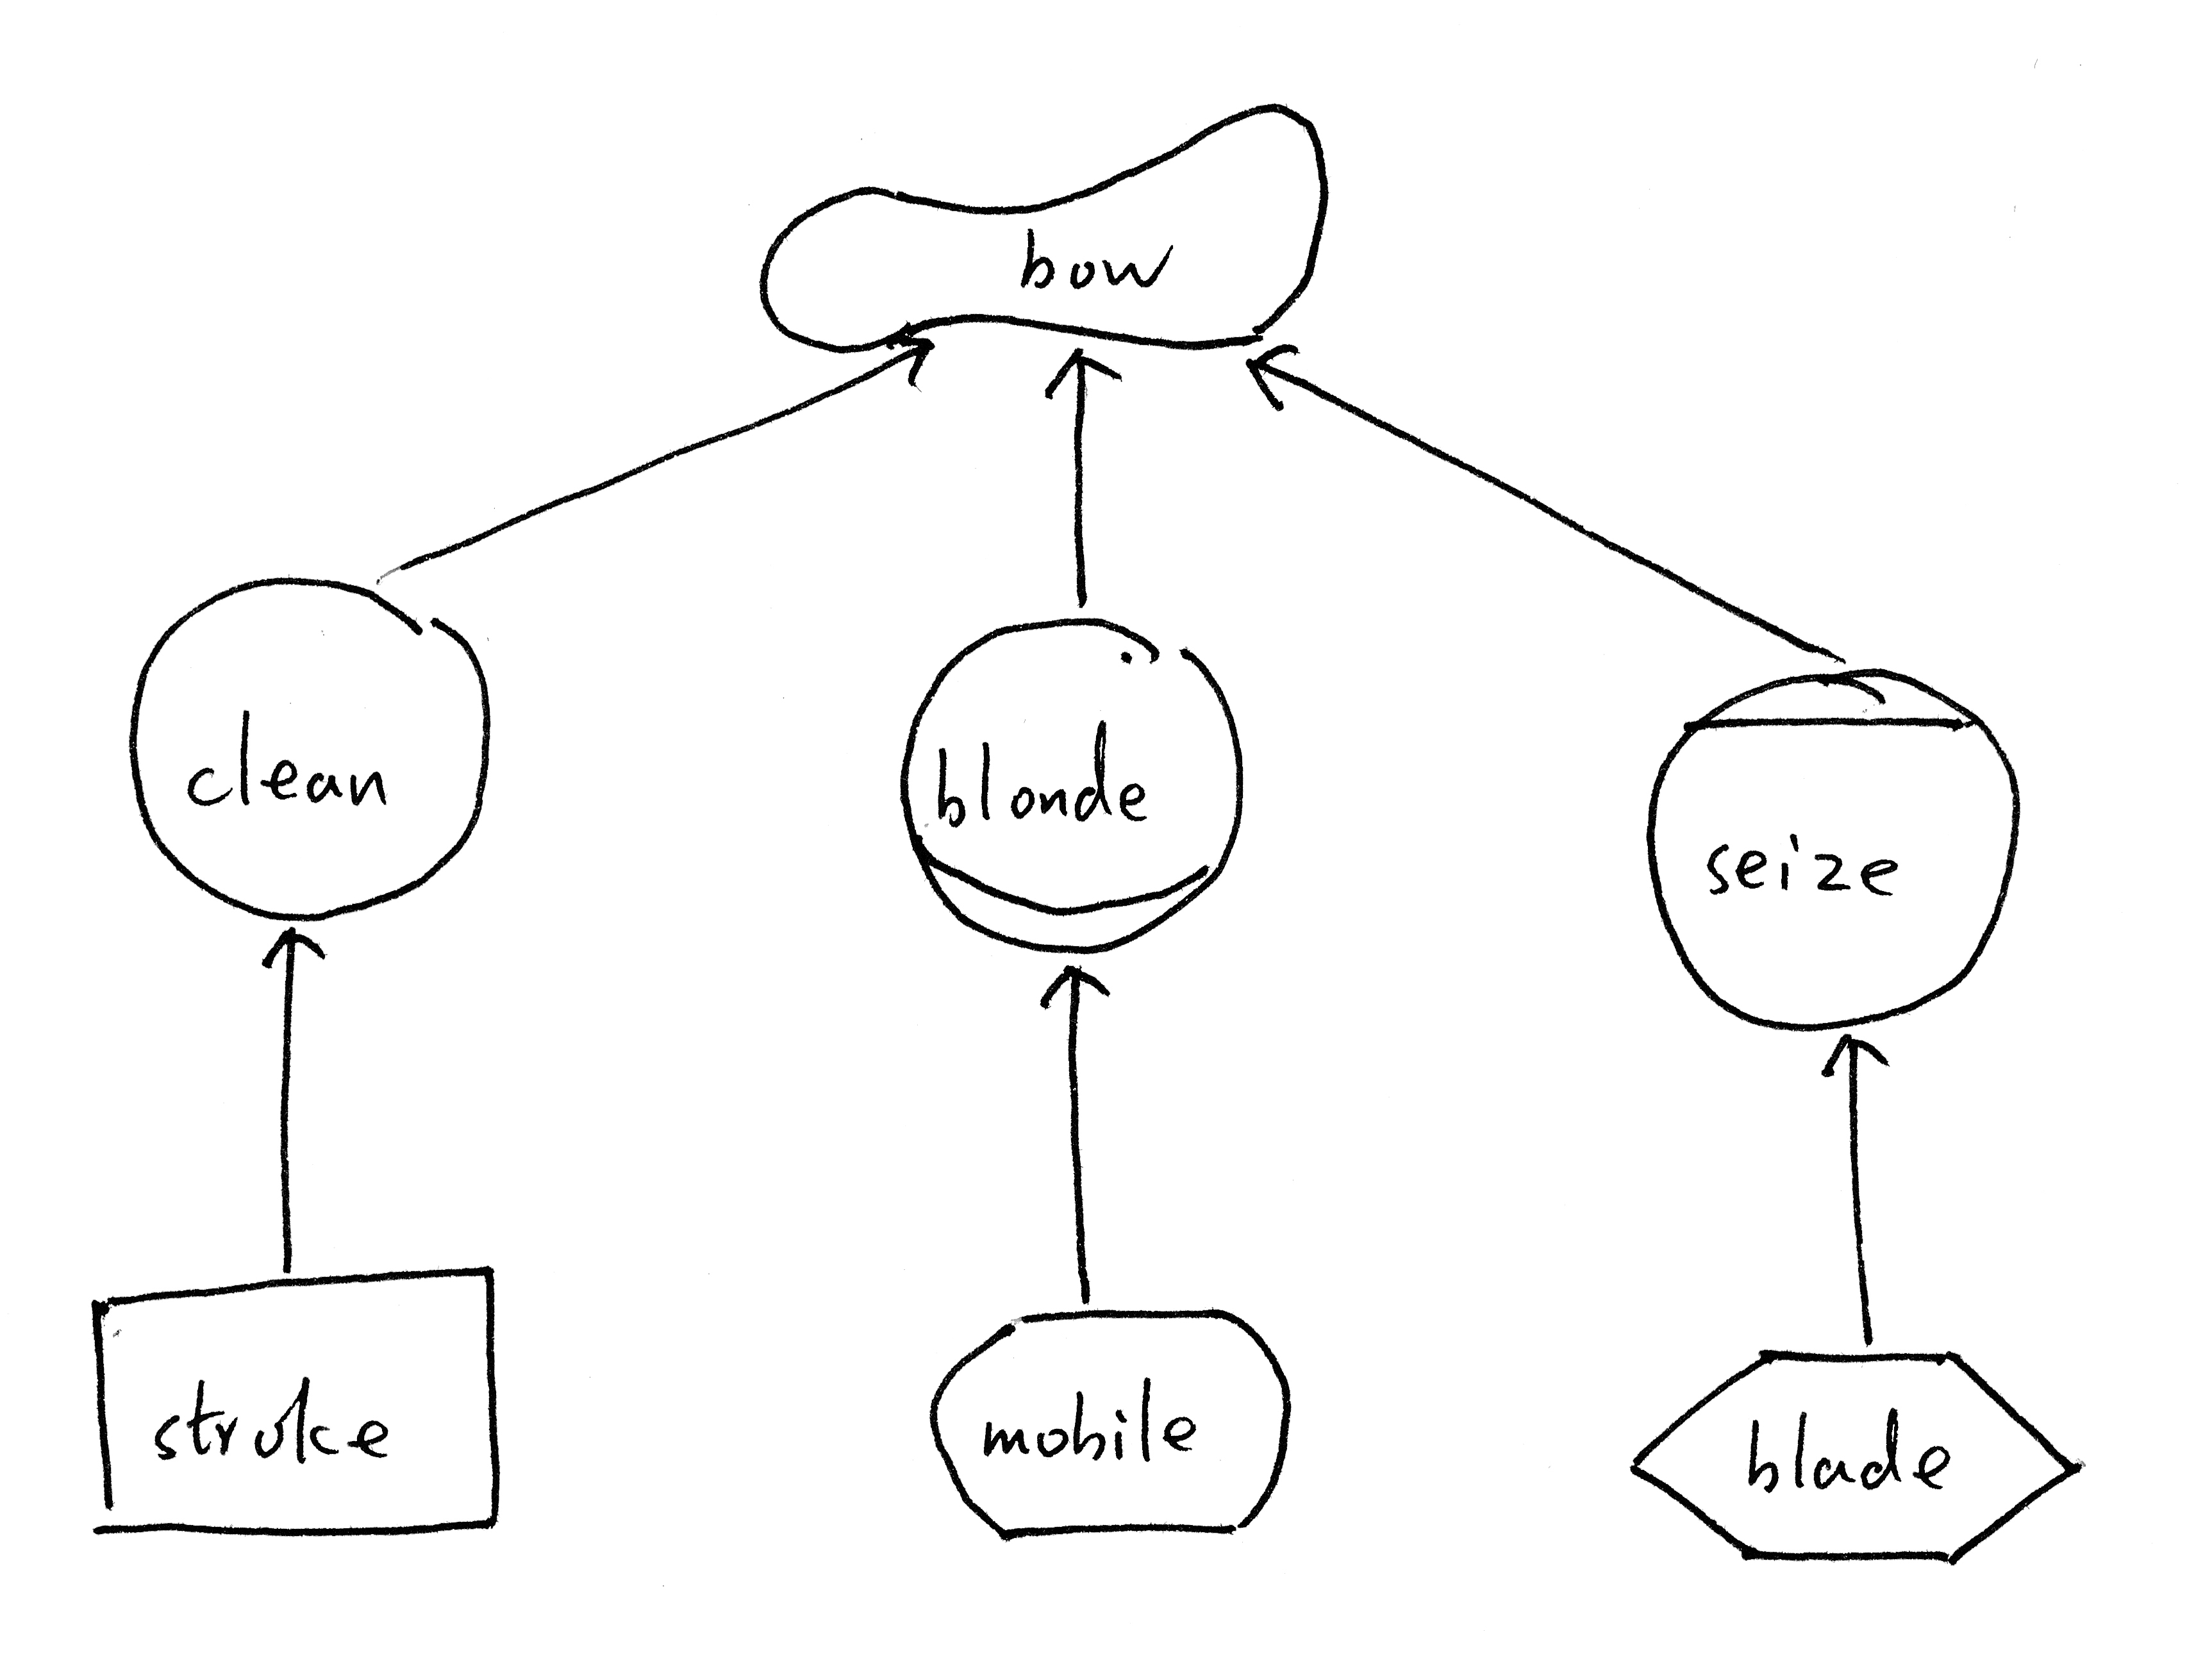 bow
clean
blonde
seize
stroke
mobile
blade